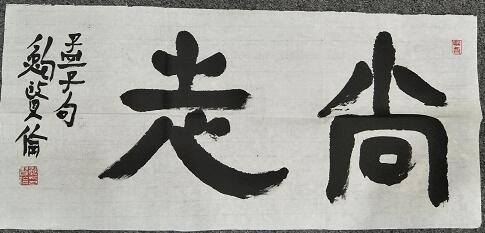 尚志
孟子句
鮑賢倫